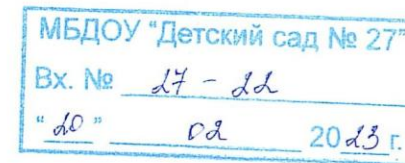 МБДОУ "Детский сад № 27"
Вх. № 27 - 22
"20" 02 2023 г.